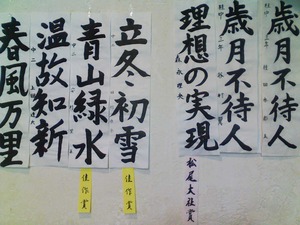 歳月不待人
歳月不待人
理想の実現
松尾大社賞
立冬初雪
佳作賞
青山緑水
佳作賞
温故知新
春風万里